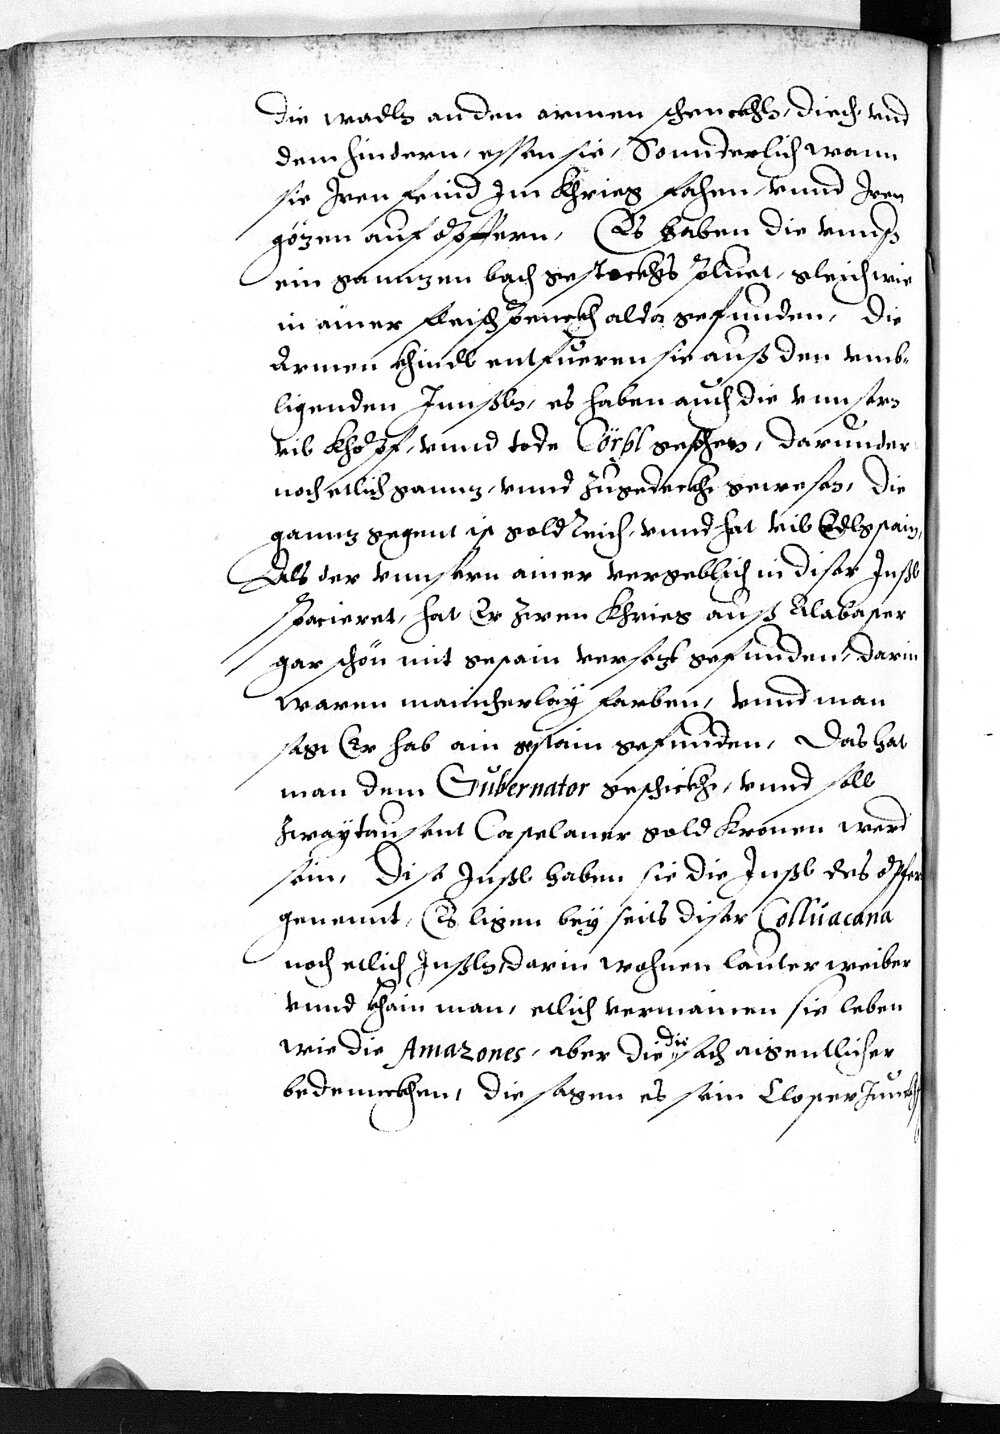 die wadln an den armen schenckhln, diech, vnd
dem hindern, essen sie, Sonnderlich wann
sie Iren feind Im Khrieg fahen, vnnd Iren
gözen auf opffern, Es haben die vnnß
ein gannzen bach gestockhts pluet, gleich wie
in ainer fleischpenckh alda gefunden, Die
Armen khindl entfüeren sie auß den vmb-
ligenden Innßln, es haben auch die vnnsern
vil khöpf, vnnd tode Cörpl gesehen, darunder
noch etlich gannz, vnnd zugedeckht gewesen, Die
gannz gegent ist goldreich, vnnd hat vil Edlgstain,
Als der vnnsern ainer vergeblich in diser Inßl
spacieret, hat Er zwen Khrieg auß Alabaster
gar schön mit gestain versezt gefunden, darin
waren mannicherlay farben, vnnd man
sagt Er hab ain gestain gefunden, Das hat
man dem Gubernator geschickht, vnnd soll
zwaytausent Castelaner gold Kronen werd
sein, Dise Inßl haben sie die Inßl des opfer
genennt, Es ligen bey seits diser Colluacana
noch etlich Inßln, darin wohnen lauter weiber
vnnd khain man, etlich vermainen sie leben
wie die Amazones, aber die die sach aigentlicher
bedenckhen, die sagen es sein Closter Junckh